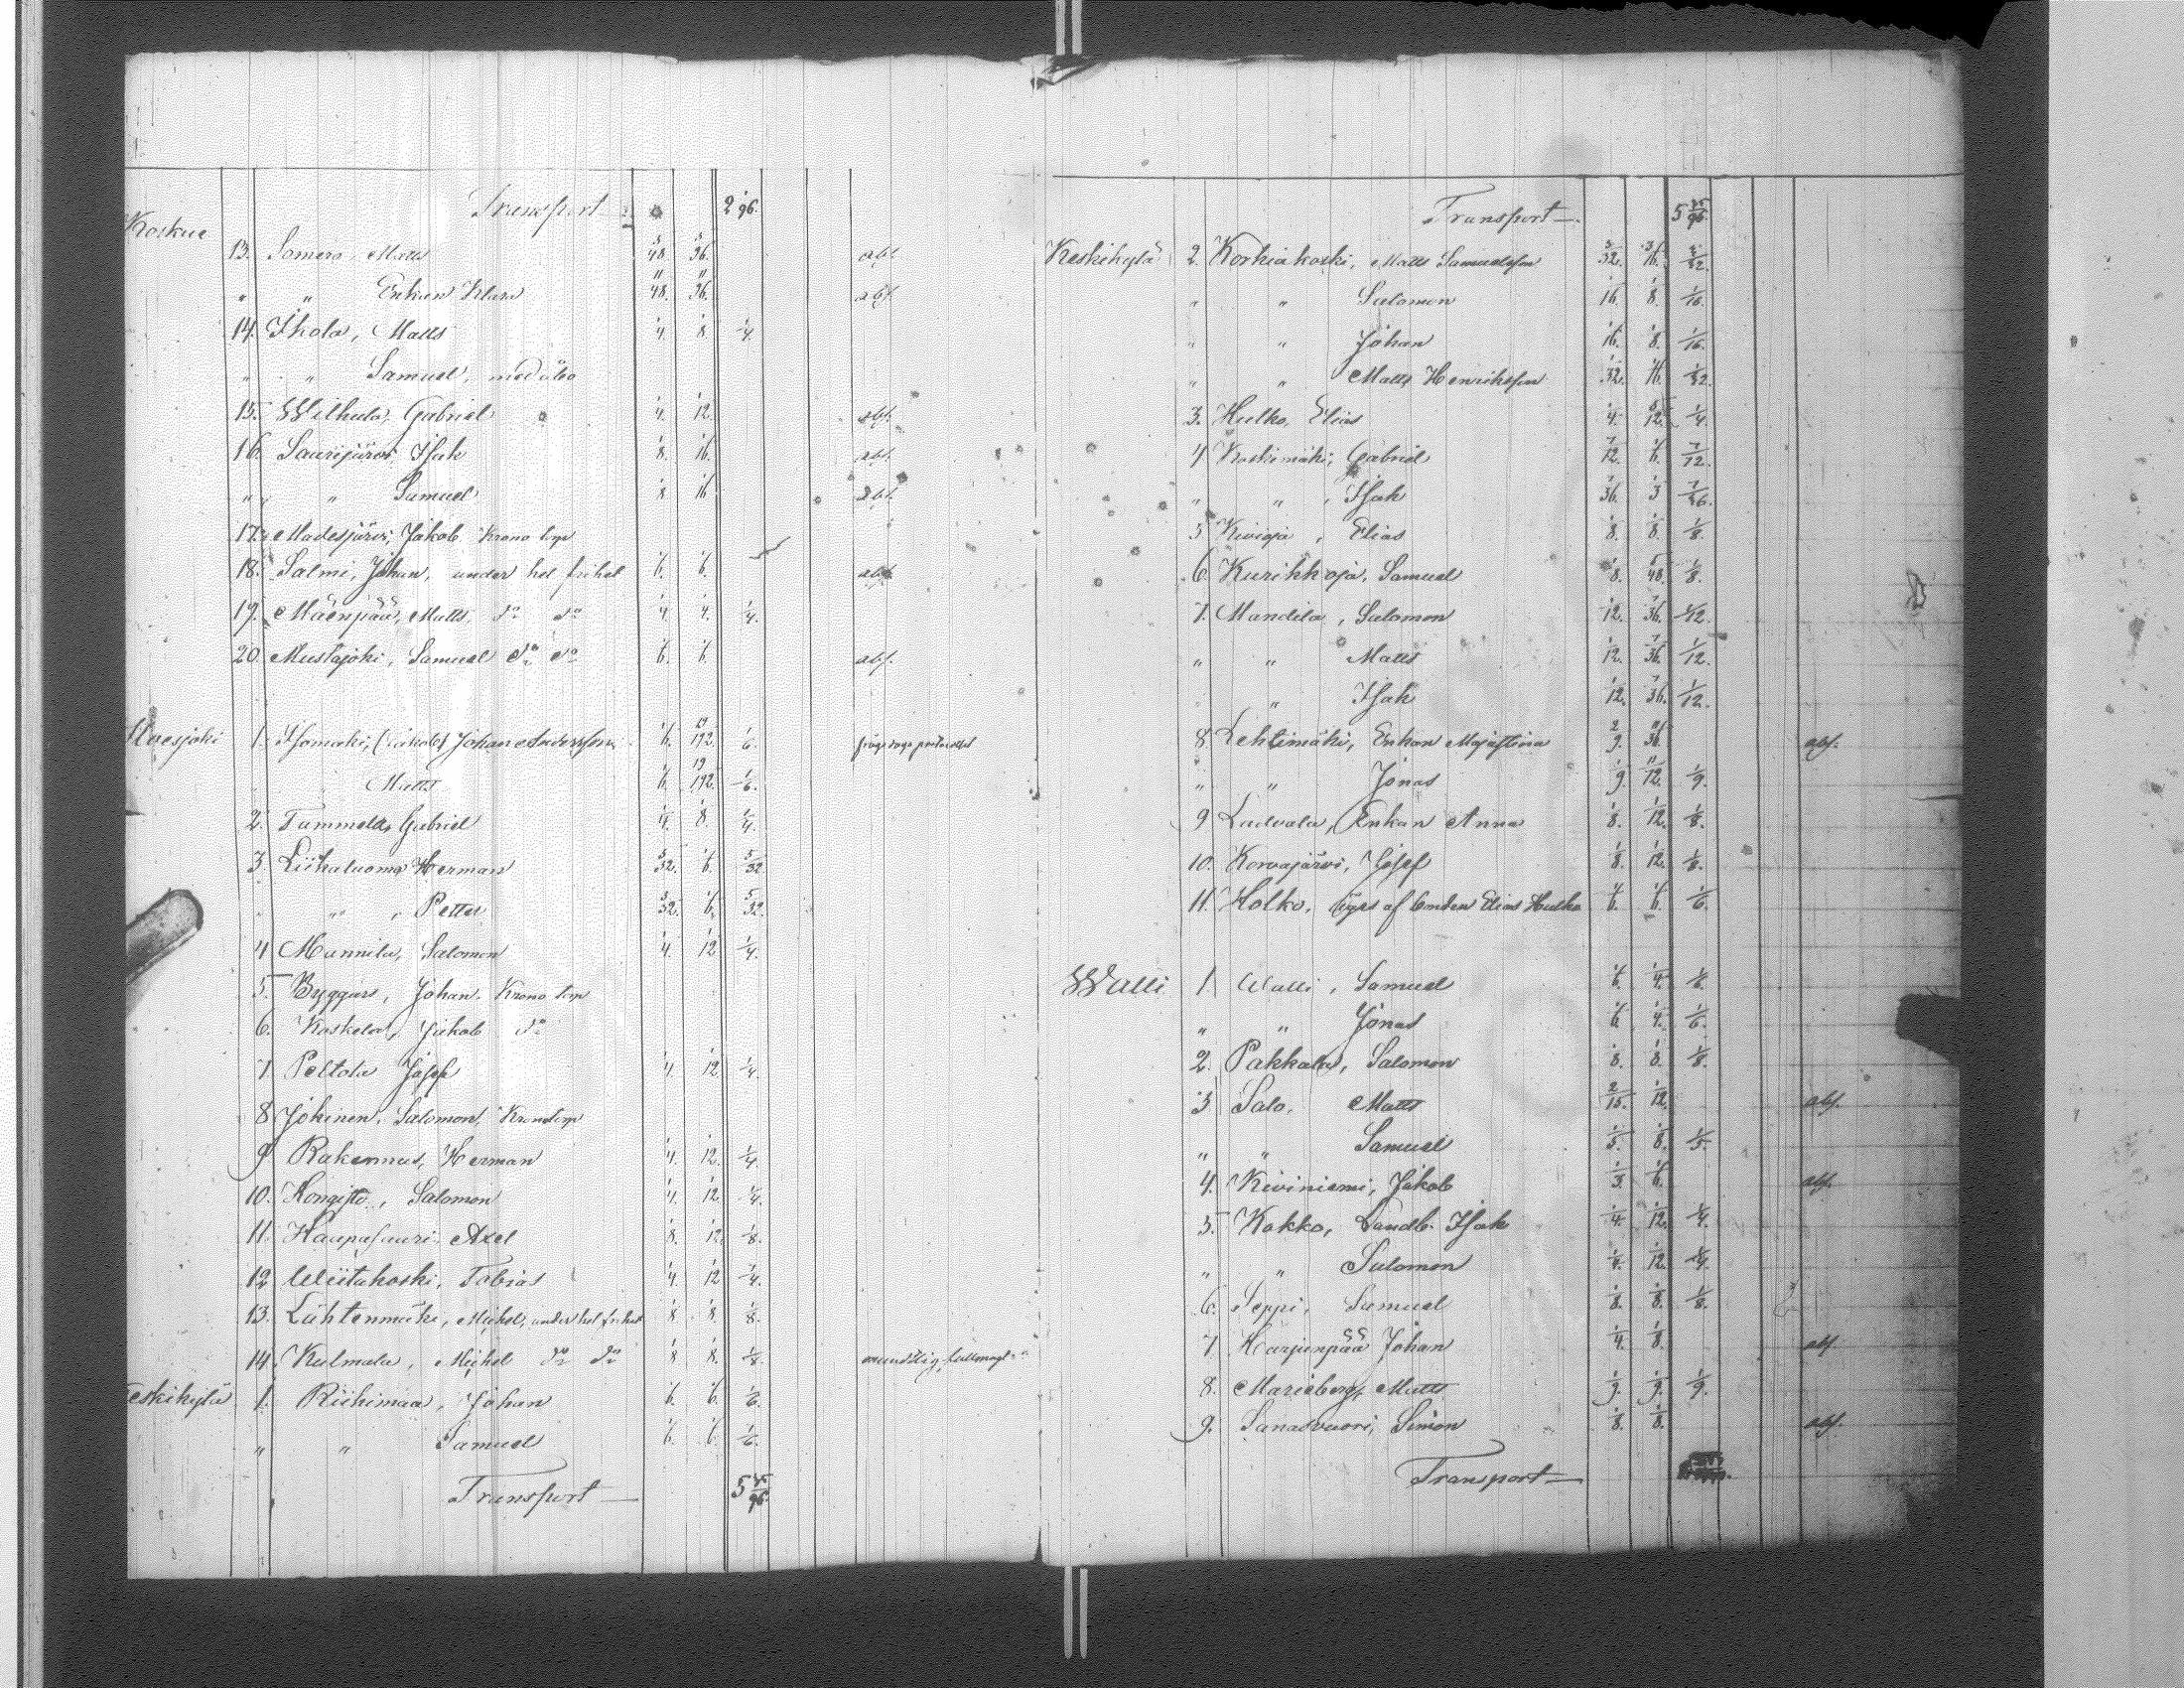 Transport — 2 1/96.
Koskue
13. Somero, Matts 5/48. 5/36. abs.
" " Enkan Klara 11/48. 11/36. abs.
14. Ikola, Matts 1/4. 1/8. 1/4.
" " Samuel,
15. Wilhula, Gabriel 1/4. 1/12. abs.
16. Saurijärvi, Isak 1/8. 1/16. abs.
" " Samuel 1/8. 1/16 abs.
17. Madesjärvi, Jakob Krono
18. Salmi, Johan, under hel frihet 1/6. 1/6. abs.
19. Mäenpää, Matts, do do 1/4. 1/4. 1/4.
20 Mustajoki, Samuel do do 1/6. 1/6. abs.
1. Isomäki, (Jakob) Johan Andersson 1/6. 19/192. 1/6.
Matts 1/6. 19/192. 1/6.
2. Tammela, Gabriel 1/4. 1/8. 1/4.
3. Liikaluoma Herman 5/32. 1/6. 5/32
" , Petter 5/32. 1/6. 5/32.
4 Mannila, Salomon 1/4. 1/12 1/4.
5. Byggars, Johan. Krono
6. Koskela, Jakob do
7. Peltola Josef 1/4. 1/12 1/4.
8 Jokinen, Salomon,
9. Rakennus, Herman 1/4. 1/12. 1/4.
10. Kongisto, Salomon 1/4. 1/12 1/4.
11. Haapasaari, Axel 1/8. 1/12. 1/8.
12 Wiitakoski, Tobias 1/4. 1/12 1/4.
13. Lähtenmäki, Mickel, under hel frihet 1/8 1/8. 1/8.
14. Kulmala, Mickel do do 1/8 1/8. 1/8. mundtlig fullmagt
eskikylä 1. Riihimaa, Johan 1/6. 1/6. 1/6.
" " Samuel 1/6. 1/6. 1/6.
Transport — 5 45/96.
Transport —. 5 45/96.
Keskikylä 2. Korkiakoski, Matts Samuelsson 3/32. 3/16.
" " Salomon 1/16. 1/8. 1/16.
" " Johan 1/16. 1/8. 1/16.
" " Matts Henriksson 1/32. 1/16. 1/32.
3. Hulko, Elias 1/4. 5/12. 1/4.
4 Koskimäki, Gabriel 7/12. 1/6. 7/12.
" " , Isak 7/36. 1/3 7/36.
5 Kivioja , Elias 1/8. 1/8. 1/8.
6. Kurikkoja, Samuel 1/8. 5/48. 1/8.
7. Mandila, Salomon 1/12. 7/36. 1/12.
" " Matts 1/12. 7/36. 1/12.
" Isak 1/12. 7/36. 1/12.
8 Lehtimäki, Enkan Majastina 2/9. 11/36. abs.
" " Jonas 1/9. 11/12. 1/9.
9 Ladvala, Enkan Anna 1/8. 1/12. 1/8.
10. Korvajärvi, Josef 1/8. 1/12. 1/8.
11. Holko, äges af bonden Elias Hulko 1/6. 1/6. 1/6.
Walli 1. Walli, Samuel 1/6. 1/4. 1/6.
" " Jonas 1/6. 1/4. 1/6.
2. Pakkala, Salomon 1/8. 1/8. 1/8.
3 Salo, Matts 2/15. 1/12. abs.
" " Samuel 1/5. 1/8. 1/5.
4. Kiviniemi, Jakob 1/3. 1/6. abs.
5. Kakko, Landb. Isak 1/4. 1/12. 1/4.
" " Salomon 1/4. 1/12. 1/4.
6. Seppi, Samuel 1/8. 1/8. 1/8.
7 Harjunpää Johan 1/4. 1/8. abs.
8. Marieberg, Matts 1/9. 1/9. 1/9.
9. Sanasvuori, Simon 1/8. 1/8. abs.
Transport —